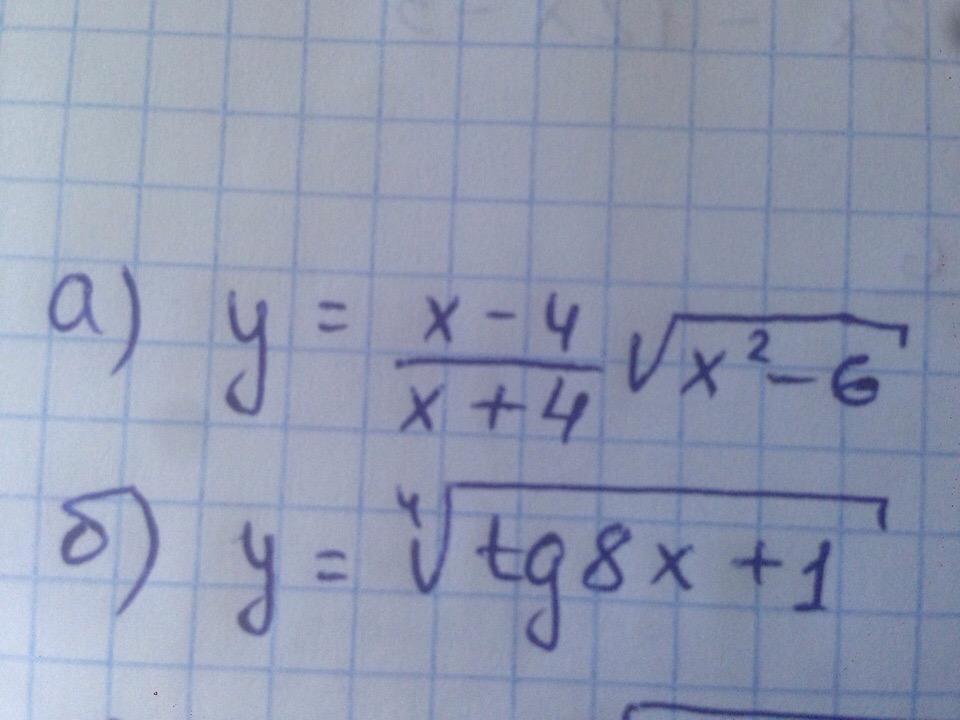 а) y = x - 4 / x + 4 √x² - 6
б) y = ⁴√tg8x + 1